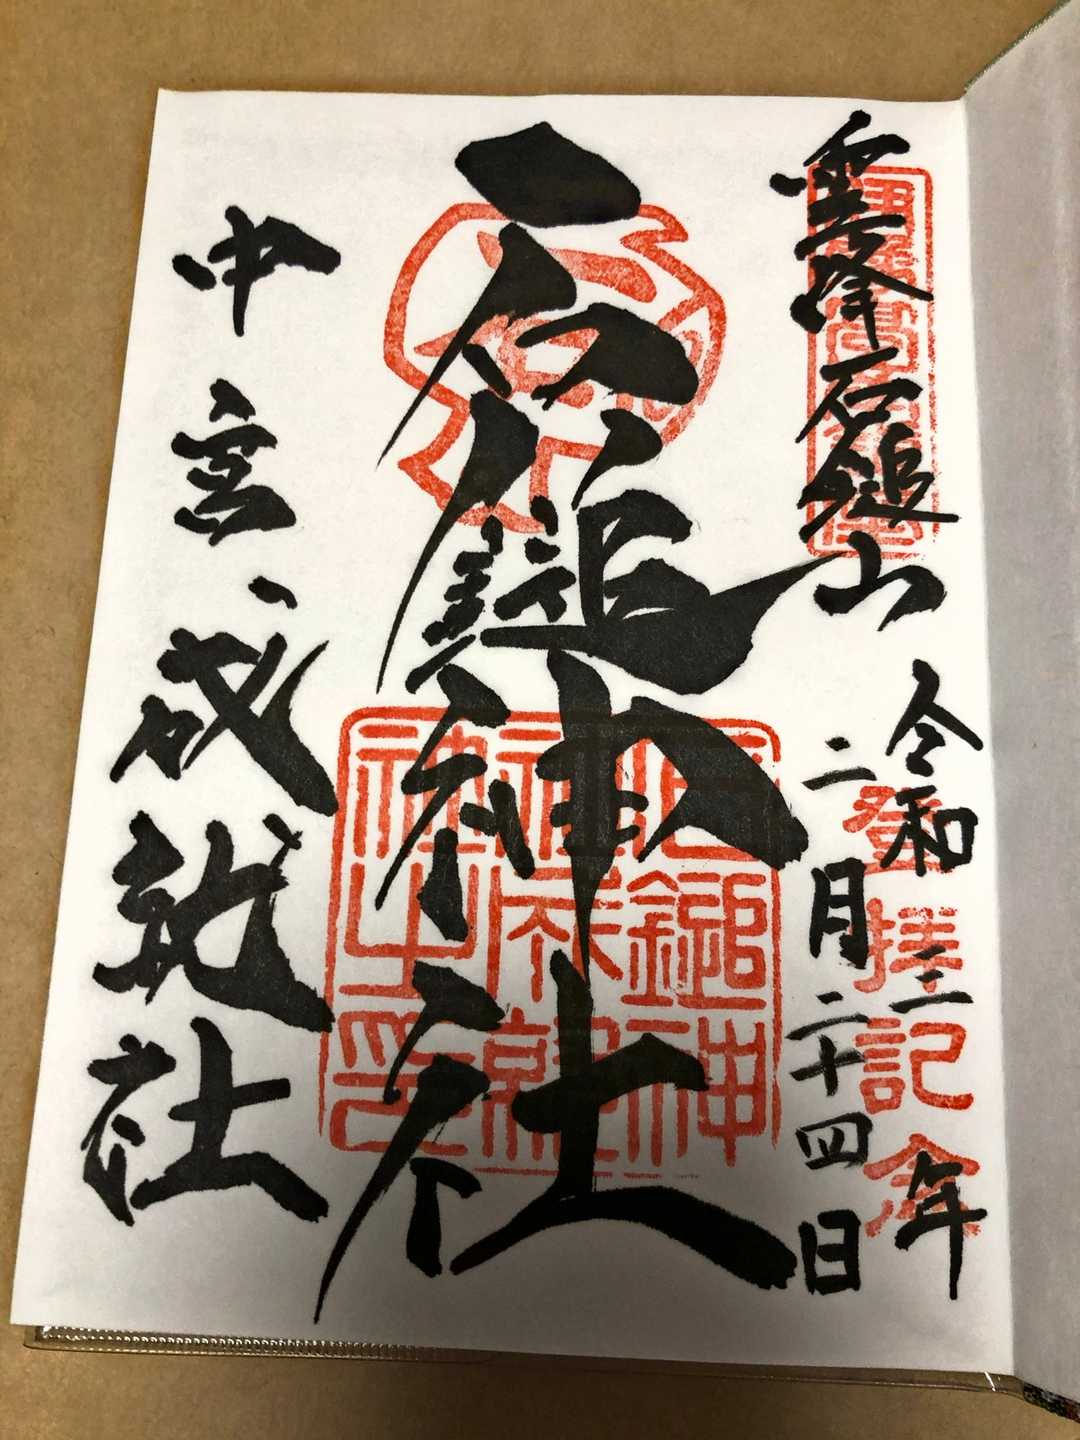 霊峰石鎚山
令和三年
二月二十四日
登拝記念
石鎚神社
石鎚神社中宮成就社之印
中宮 成就社